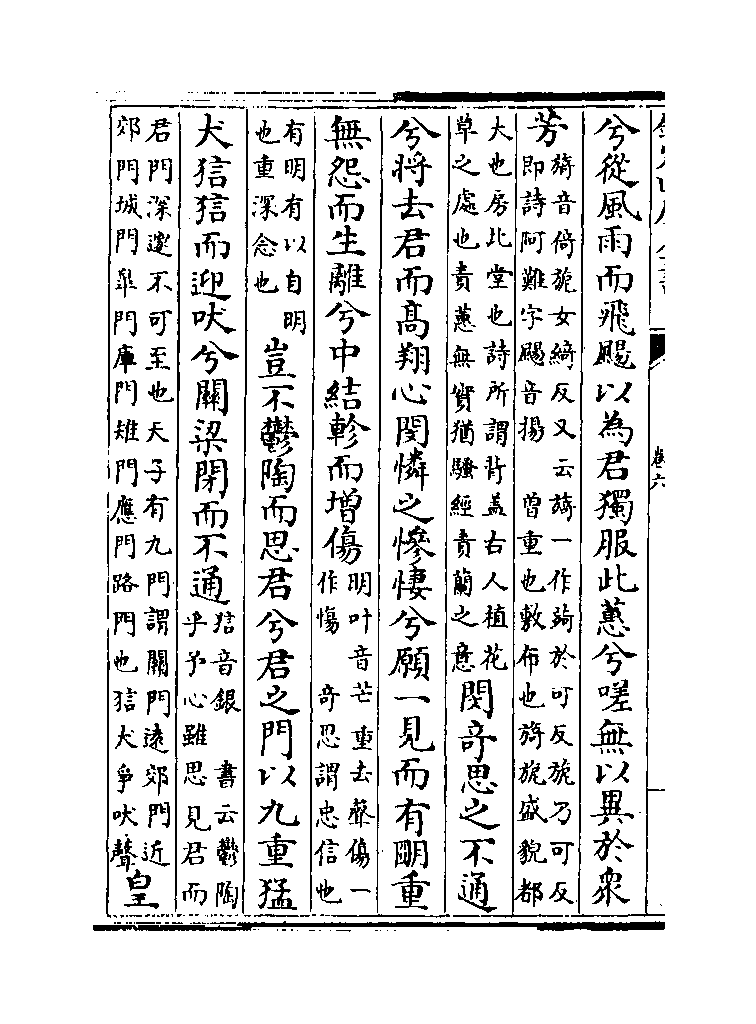 卷六
兮從風雨而飛颺以為君獨服此蕙兮嗟無以異於衆
芳
旖音倚旎女綺反又云旖一作猗於可反旎乃可反
即詩阿難字颺音揚　曽重也敷布也旖旎盛貌都
大也房北堂也詩所謂背盖古人植花
草之處也責蕙無實猶騷經責蘭之意
閔奇思之不通
兮将去君而髙翔心閔憐之慘悽兮願一見而有眀重
無怨而生離兮中結軫而增傷
明叶音芒重去聲傷一
作慯　奇思謂忠信也
有明有以自明
也重深念也
豈不鬱陶而思君兮君之門以九重猛
犬狺狺而迎吠兮關梁閉而不通
狺音銀　書云鬱陶
乎予心雖思見君而
君門深邃不可至也天子有九門謂關門逺郊門近
郊門城門臯門庫門雉門應門路門也狺犬爭吠聲
皇